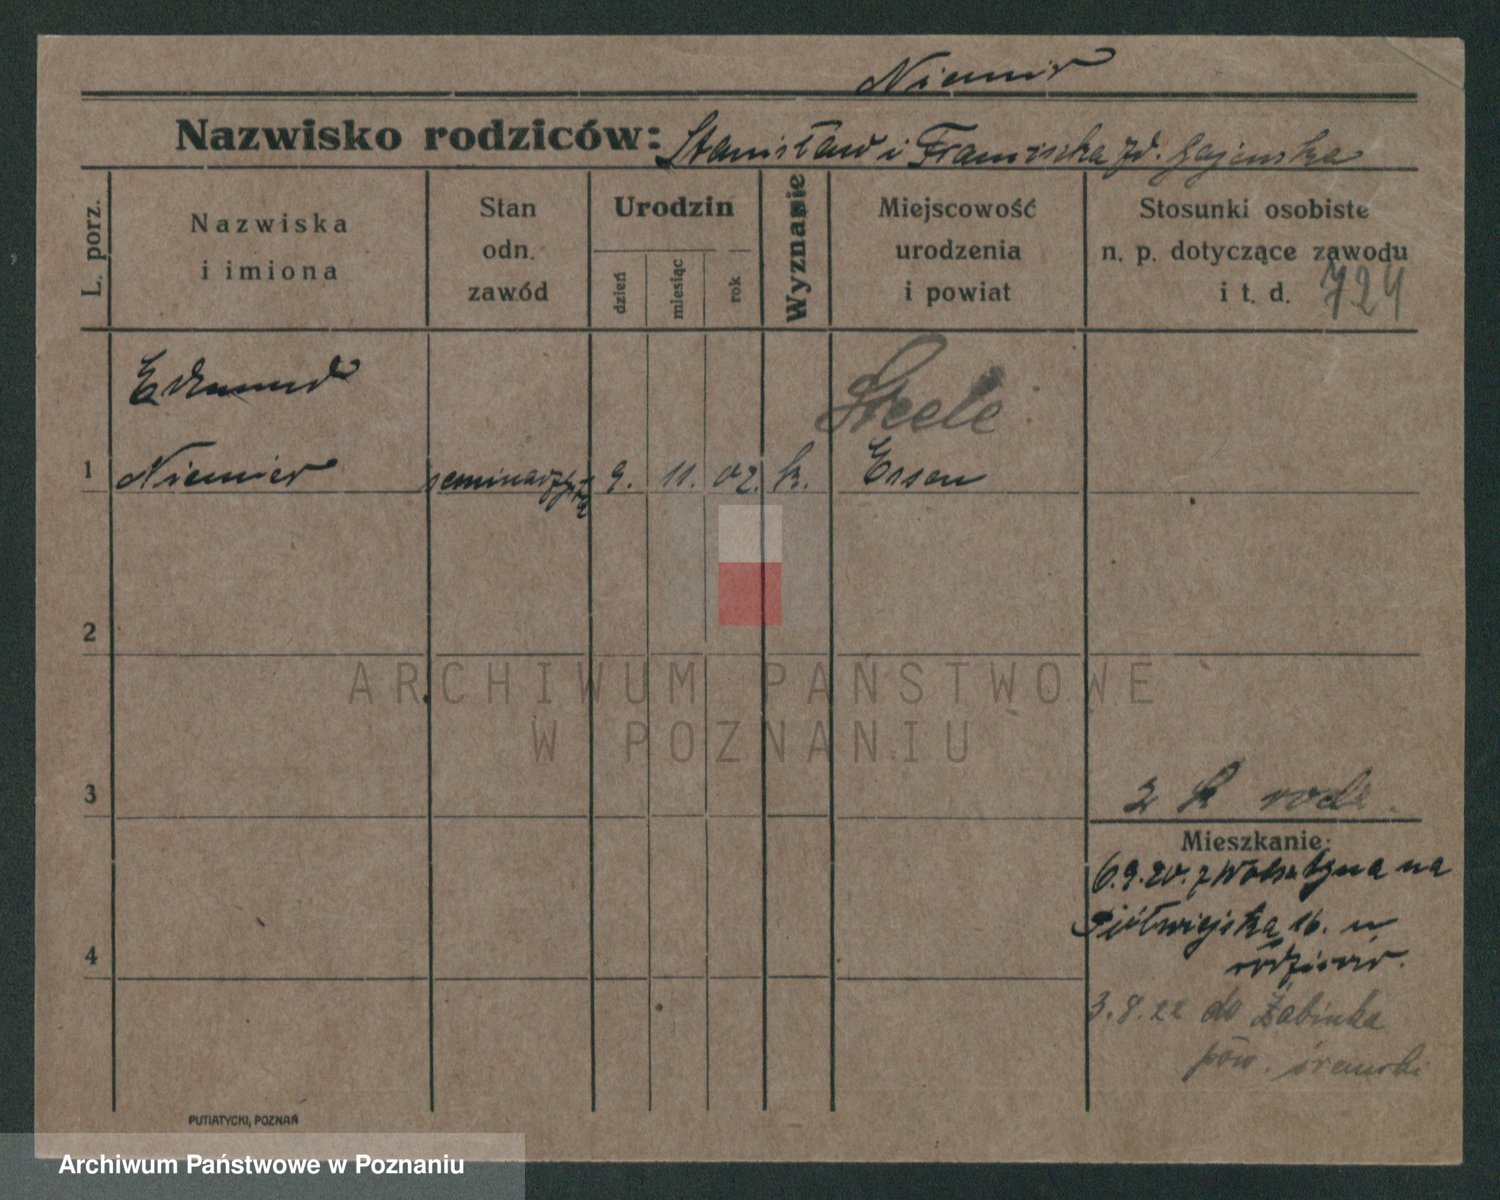 Niemir
Nazwisko rodziców: Stanisław i Franciszka zd. Gajewska
L. porz.
Nazwiska
i imiona
Stan
odn.
zawód
Urodzin
dzień
miesiąc
rok
Wyznanie
Miejscowość
urodzenia
i powiat
Stosunki osobiste
n. p. dotyczące zawodu
i t. d. 724
Edmund
Steele
1 Niemier seminarzysta 9. 11. 02. k. Essen
2
ARCHIWUM PAŃSTWOWE
W POZNANIU
3
2 k rodz.
Mieszkanie:
6.9.20. z Wolsztyna na
Półwiejska 16. u
rodziców.
4
3.8.22 do Żabinka
pow. śremski
PUTIATYCKI, POZNAŃ
Archiwum Państwowe w Poznaniu